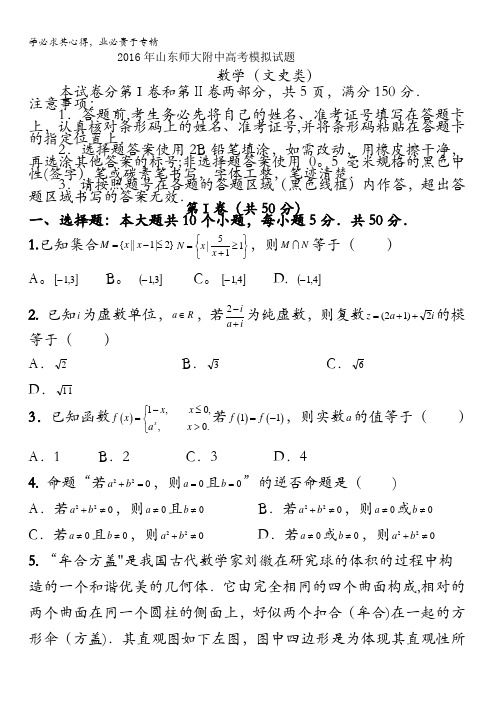 学必求其心得，业必贵于专精
2016年山东师大附中高考模拟试题
数学（文史类）
本试卷分第I卷和第II卷两部分，共5页，满分150分．
注意事项：
1．答题前,考生务必先将自己的姓名、准考证号填写在答题卡
上，认真核对条形码上的姓名、准考证号,并将条形码粘贴在答题卡
的指定位置上．
2．选择题答案使用2B铅笔填涂，如需改动，用橡皮擦干净，
再选涂其他答案的标号;非选择题答案使用0。5毫米规格的黑色中
性(签字）笔或碳素笔书写，字体工整，笔迹清楚．
3．请按照题号在各题的答题区域（黑色线框）内作答，超出答
题区域书写的答案无效.
第I卷（共50分）
一、选择题：本大题共10个小题，每小题5分．共50分．
1.已知集合M={x||x-1|≤2} N={x|5/(x+1)≥1}，则M∩N等于（ ）
A。[-1,3] B。 (-1,3] C。[-1,4] D. (-1,4]
2. 已知i为虚数单位，a∈R，若(2-i)/(a+i)为纯虚数，则复数z=(2a+1)+√2i的模
等于（ ）
A．√2 B．√3 C．√6
D．√11
3．已知函数f(x)={1-x, x≤0, a^x, x>0. 若f(1)=f(-1)，则实数a的值等于（ ）
A．1 B．2 C．3 D．4
4. 命题“若a²+b²=0，则a=0且b=0”的逆否命题是（ ）
A．若a²+b²≠0，则a≠0且b≠0 B．若a²+b²≠0，则a≠0或b≠0
C．若a≠0且b≠0，则a²+b²≠0 D．若a≠0或b≠0，则a²+b²≠0
5.“牟合方盖"是我国古代数学家刘徽在研究球的体积的过程中构
造的一个和谐优美的几何体．它由完全相同的四个曲面构成,相对的
两个曲面在同一个圆柱的侧面上，好似两个扣合（牟合)在一起的方
形伞（方盖)．其直观图如下左图，图中四边形是为体现其直观性所